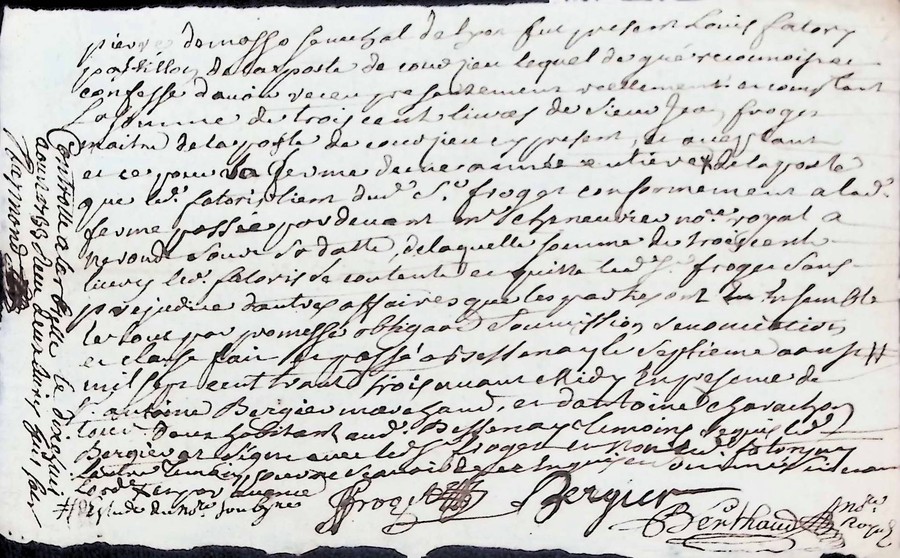 pierre de masso senechal de Lyon fut present Louis fatory
postillon de la poste de coudjeu lequel de gré reconnoit et
confesse d'avoir receu presentement reellement et comptant
La somme de trois cent livres de sieur Jean froget
maitre de la poste de coudjeu cy present, et acceptant
et ce pour la ferme d'une année entiere de la poste
que led. fatoris tient dud. Sr. froget conformement a la d.
ferme passée par devant me. cheneurie nore. royal a
neronde sous sa datte, de laquelle somme de trois cent
livres led. fatoris se contente et quitte led. Sr. froget sans
prejudice d'autres affaires que les parties ont ensemble
le tout par promesse obligaon soumission renonciation
et clause fait et passé a Bessenay le septieme aoust #
mil sept cent trante trois avant Midy En presence de
Sr. antoine Bergier marchand, et d'antoine
tous deux habitant aud. Bessenay temoins requis led.
Bergier a signé avec led. Sr. froget et non led. fatoris
# Estude du nore. soubsigné
froget
Bergier
Berthaud nore. Royal
Controllé a Larbresle le dixieme
aoust 1733 Receu deux livres huit sols
Raymond